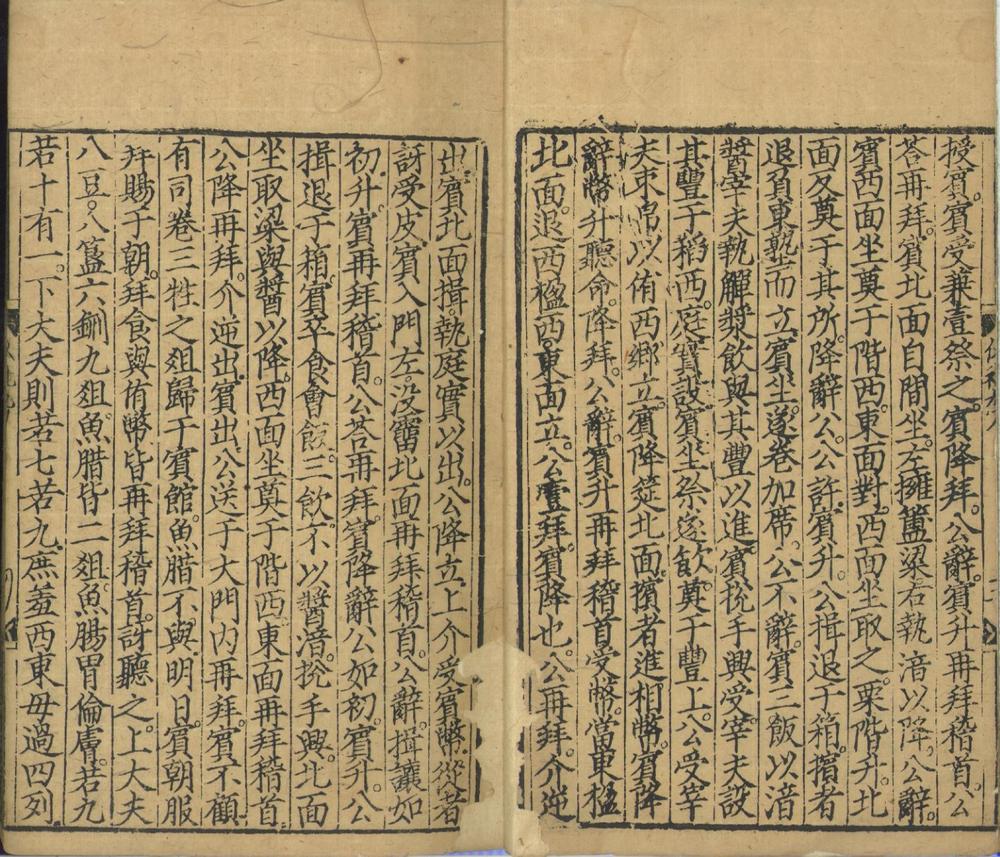 授賓。賓受兼壹祭之。賓降拜。公辭。賓升再拜稽首。公
答再拜。賓北面自間坐。左擁簠粱右執湆以降。公辭。
賓西面坐奠于階西。東面對。西面坐取之。栗階升。北
面反奠于其所。降辭公。公許賓升。公揖退于箱。擯者
退負東塾而立。賓坐。遂卷加席。公不辭。賓三飯以湆
醬宰夫執觶漿飲與其豐以進賓挩手興受宰夫設
其豐于稻西。庭實設賓坐祭遂飲。奠于豐上。公受宰
夫束帛以侑西鄉立。賓降筵北面。擯者進相幣。賓降
辭幣升聽命。降拜。公辭。賓升再拜稽首受幣。當東楹
北面。退西楹西。東面立。公壹拜。賓降也。公再拜。介逆
出賓北面揖。執庭實以出。公降立。上介受賓幣。從者
訝受皮。賓入門左。沒霤北面再拜稽首。公辭。揖讓如
初。升。賓再拜稽首。公答再拜。賓降辭公如初。賓升。公
揖退于箱。賓卒食會飯。三飲。不以醬湆。挩手興。北面
坐取粱與醬以降。西面坐奠于階西東面再拜稽首
公降再拜。介逆出。賓出。公送于大門內再拜。賓不顧
有司卷三牲之俎歸于賓館。魚腊不與。明日。賓朝服
拜賜于朝。拜食與侑幣皆再拜稽首。訝聽之。上大夫
八豆。八簋六鉶九俎魚腊皆二俎。魚腸胃倫膚。若九
若十有一。下大夫則若七若九。庶羞西東毋過四列